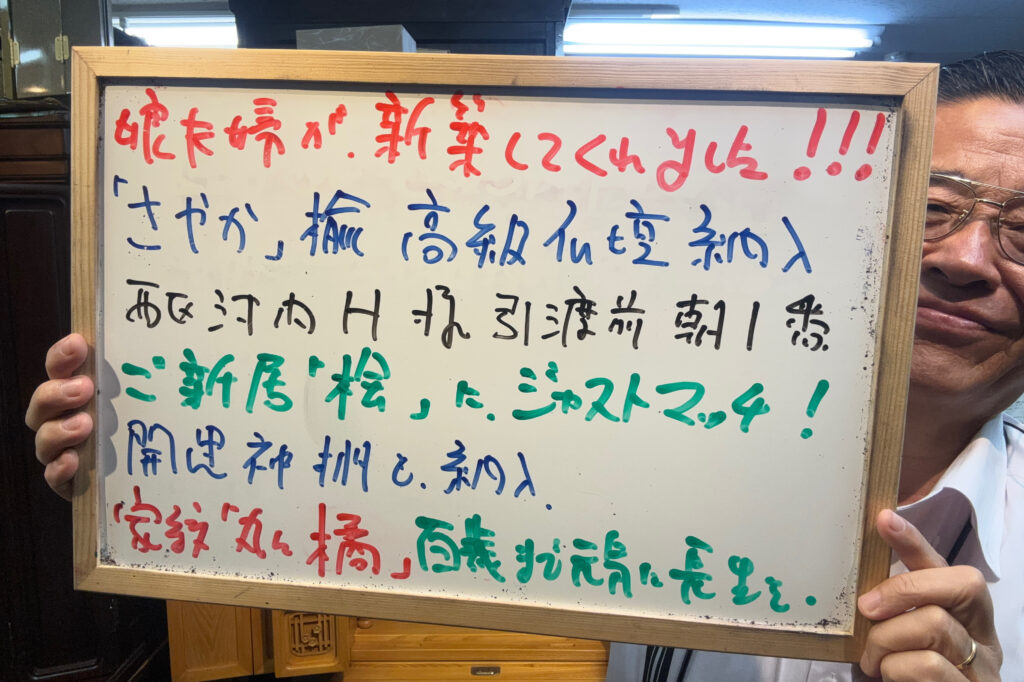 娘夫婦が、新築してくれました!!!
「さやか」楡 高級仏壇納入
西区河内H様引渡前朝1番
ご新居「桧」に、ジャストマッチ!
開運神棚も、納入.
「家紋「丸に橘」百歳まで元気に長生を.